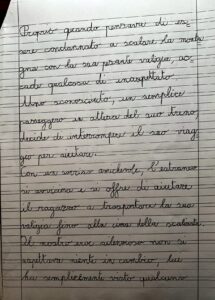 Proprio quando pensava di es-
sere condannato a scalare la monta
gna con la sua pesante valigia, ac-
cade qualcosa di inaspettato.
Uno sconosciuto, un semplice
passeggero in attesa del suo treno,
decide di interrompere il suo viag-
gio per aiutare.
Con un sorriso amichevole, l'estraneo
si avvicina e si offre di aiutare
il ragazzo a trasportare la sua
valigia fino alla cima della scalinata.
Il nostro eroe salernoso non si
aspettava niente in cambio, lui
ha semplicemente visto qualcuno